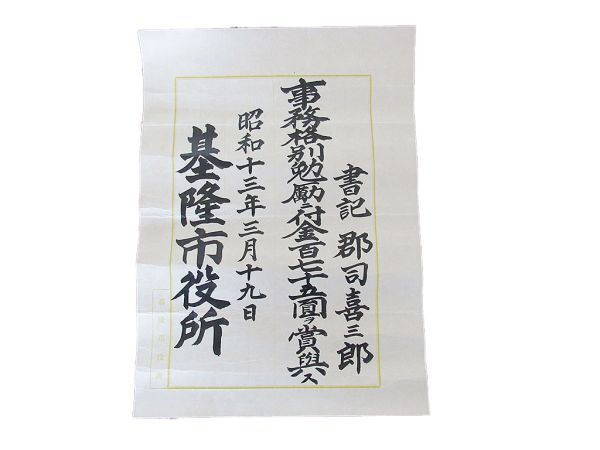 書記 郡司喜三郎
事務格別勉勵ニ付金百七十五圓ヲ賞與ス
昭和十三年三月十九日
基隆市役所
基隆市役所